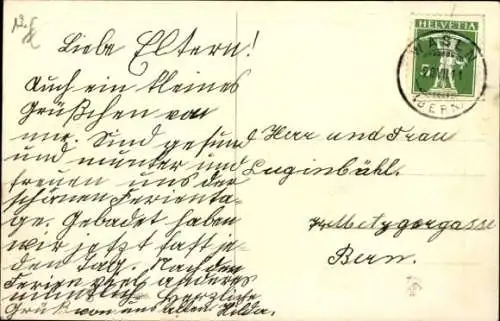 Liebe Eltern!
Auch ein kleines
Grüßchen von
mir. Sind gesund
und munter und
freuen uns der
schönen Ferienta-
ge. Gebadet haben
wir jetzt fast je-
den Tag. Nach den
Ferien viel anderes
mündlich. Herzliche
Grüße von uns allen Hilda.
HELVETIA
WASEN
VII 11
(BERN)
Herr und Frau
Luginbühl.
Metzgergasse
Bern.